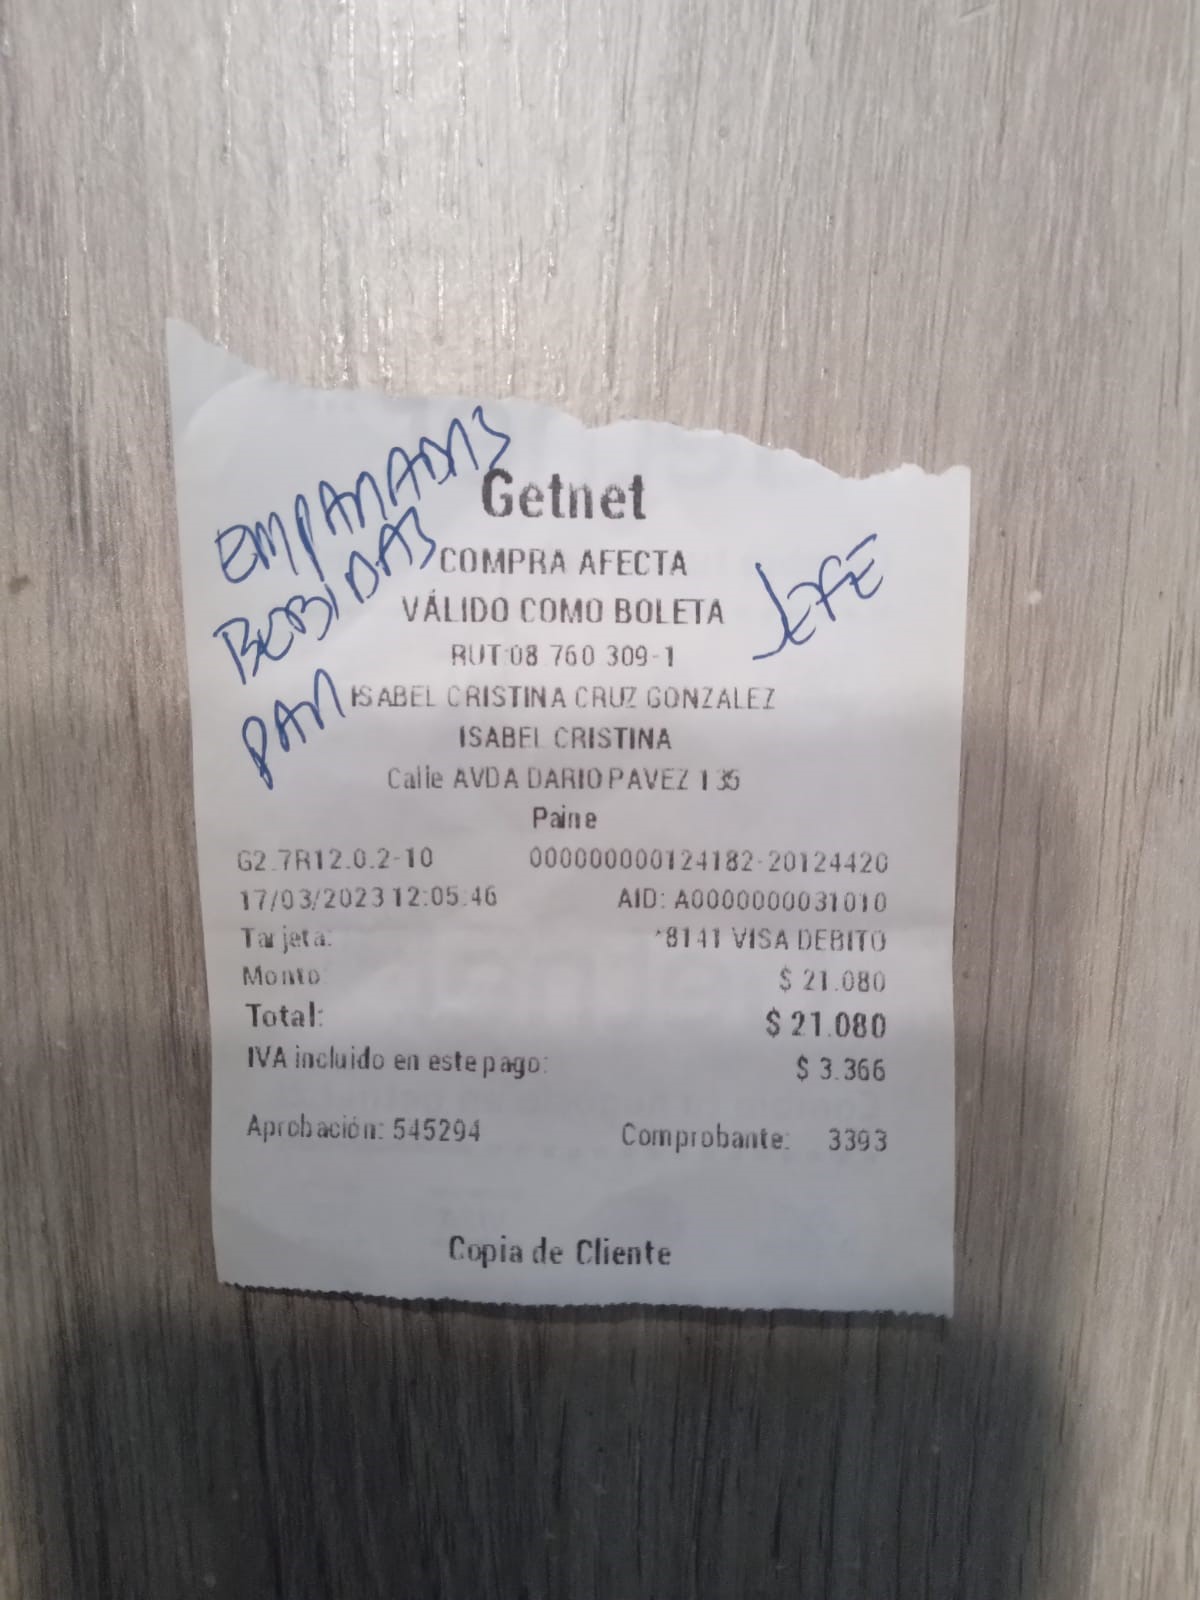 EMPANADAS
BEBIDAS
PAN
JEFE
Getnet
COMPRA AFECTA
VÁLIDO COMO BOLETA
RUT:08 760 309-1
ISABEL CRISTINA CRUZ GONZALEZ
ISABEL CRISTINA
Calle AVDA DARIO PAVEZ 135
Paine
G2.7R12.0.2-10 000000000124182-20124420
17/03/2023 12:05:46 AID: A0000000031010
Tarjeta: *8141 VISA DEBITO
Monto: $ 21.080
Total: $ 21.080
IVA incluido en este pago: $ 3.366
Aprobación: 545294 Comprobante: 3393
Copia de Cliente